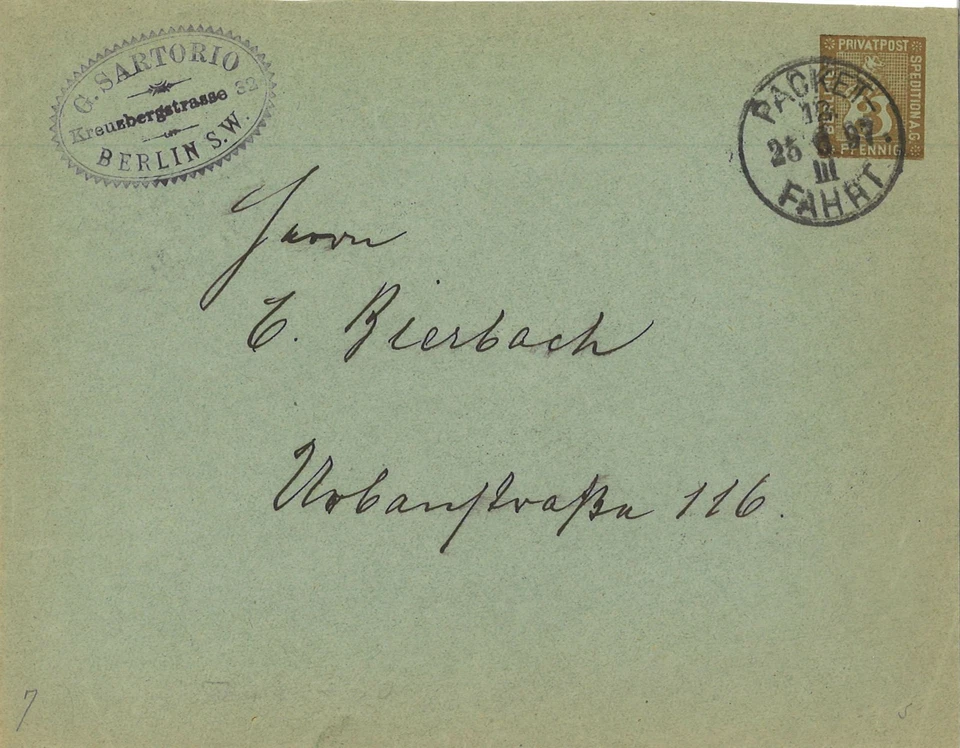 G. SARTORIO
Kreuzbergstrasse 32
BERLIN S.W.
PRIVATPOST
SPEDITION A.G.
3
PFENNIG
PACKET-
12
25 6 97.
III
FAHRT
Herrn
E. Bierbach
Urbanstraße 116.
7